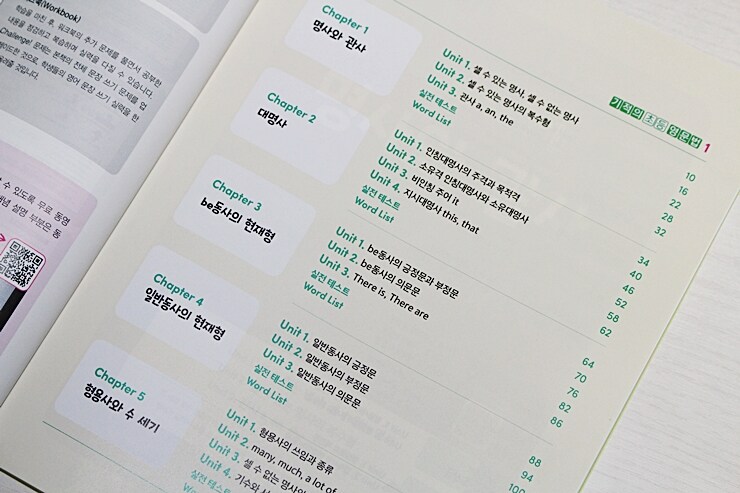 북(Workbook)
학습을 마친 후, 워크북의 추가 문제를 풀면서 공부한
내용을 점검하고 복습하며 실력을 다질 수 있습니다.
Challenge! 문제는 본책의 전체 문장 쓰기 문제를 업
레이드한 것으로, 학생들의 영어 문장 쓰기 실력을 한
수 있도록 무료 동영
설명 부분은 동
기적의 초등 영문법 1
Chapter 1
명사와 관사
Unit 1. 셀 수 있는 명사, 셀 수 없는 명사 10
Unit 2. 셀 수 있는 명사의 복수형 16
Unit 3. 관사 a, an, the 22
실전 테스트 28
Word List 32
Chapter 2
대명사
Unit 1. 인칭대명사의 주격과 목적격 34
Unit 2. 소유격 인칭대명사와 소유대명사 40
Unit 3. 비인칭 주어 it 46
Unit 4. 지시대명사 this, that 52
실전 테스트 58
Word List 62
Chapter 3
be동사의 현재형
Unit 1. be동사의 긍정문과 부정문 64
Unit 2. be동사의 의문문 70
Unit 3. There is, There are 76
실전 테스트 82
Word List 86
Chapter 4
일반동사의 현재형
Unit 1. 일반동사의 긍정문 88
Unit 2. 일반동사의 부정문 94
Unit 3. 일반동사의 의문문 100
실전 테스트
Word List
Chapter 5
형용사와 수 세기
Unit 1. 형용사의 쓰임과 종류
Unit 2. many, much, a lot of
Unit 3. 셀 수 없는 명사의
Unit 4. 기수와 서
실전 테스트